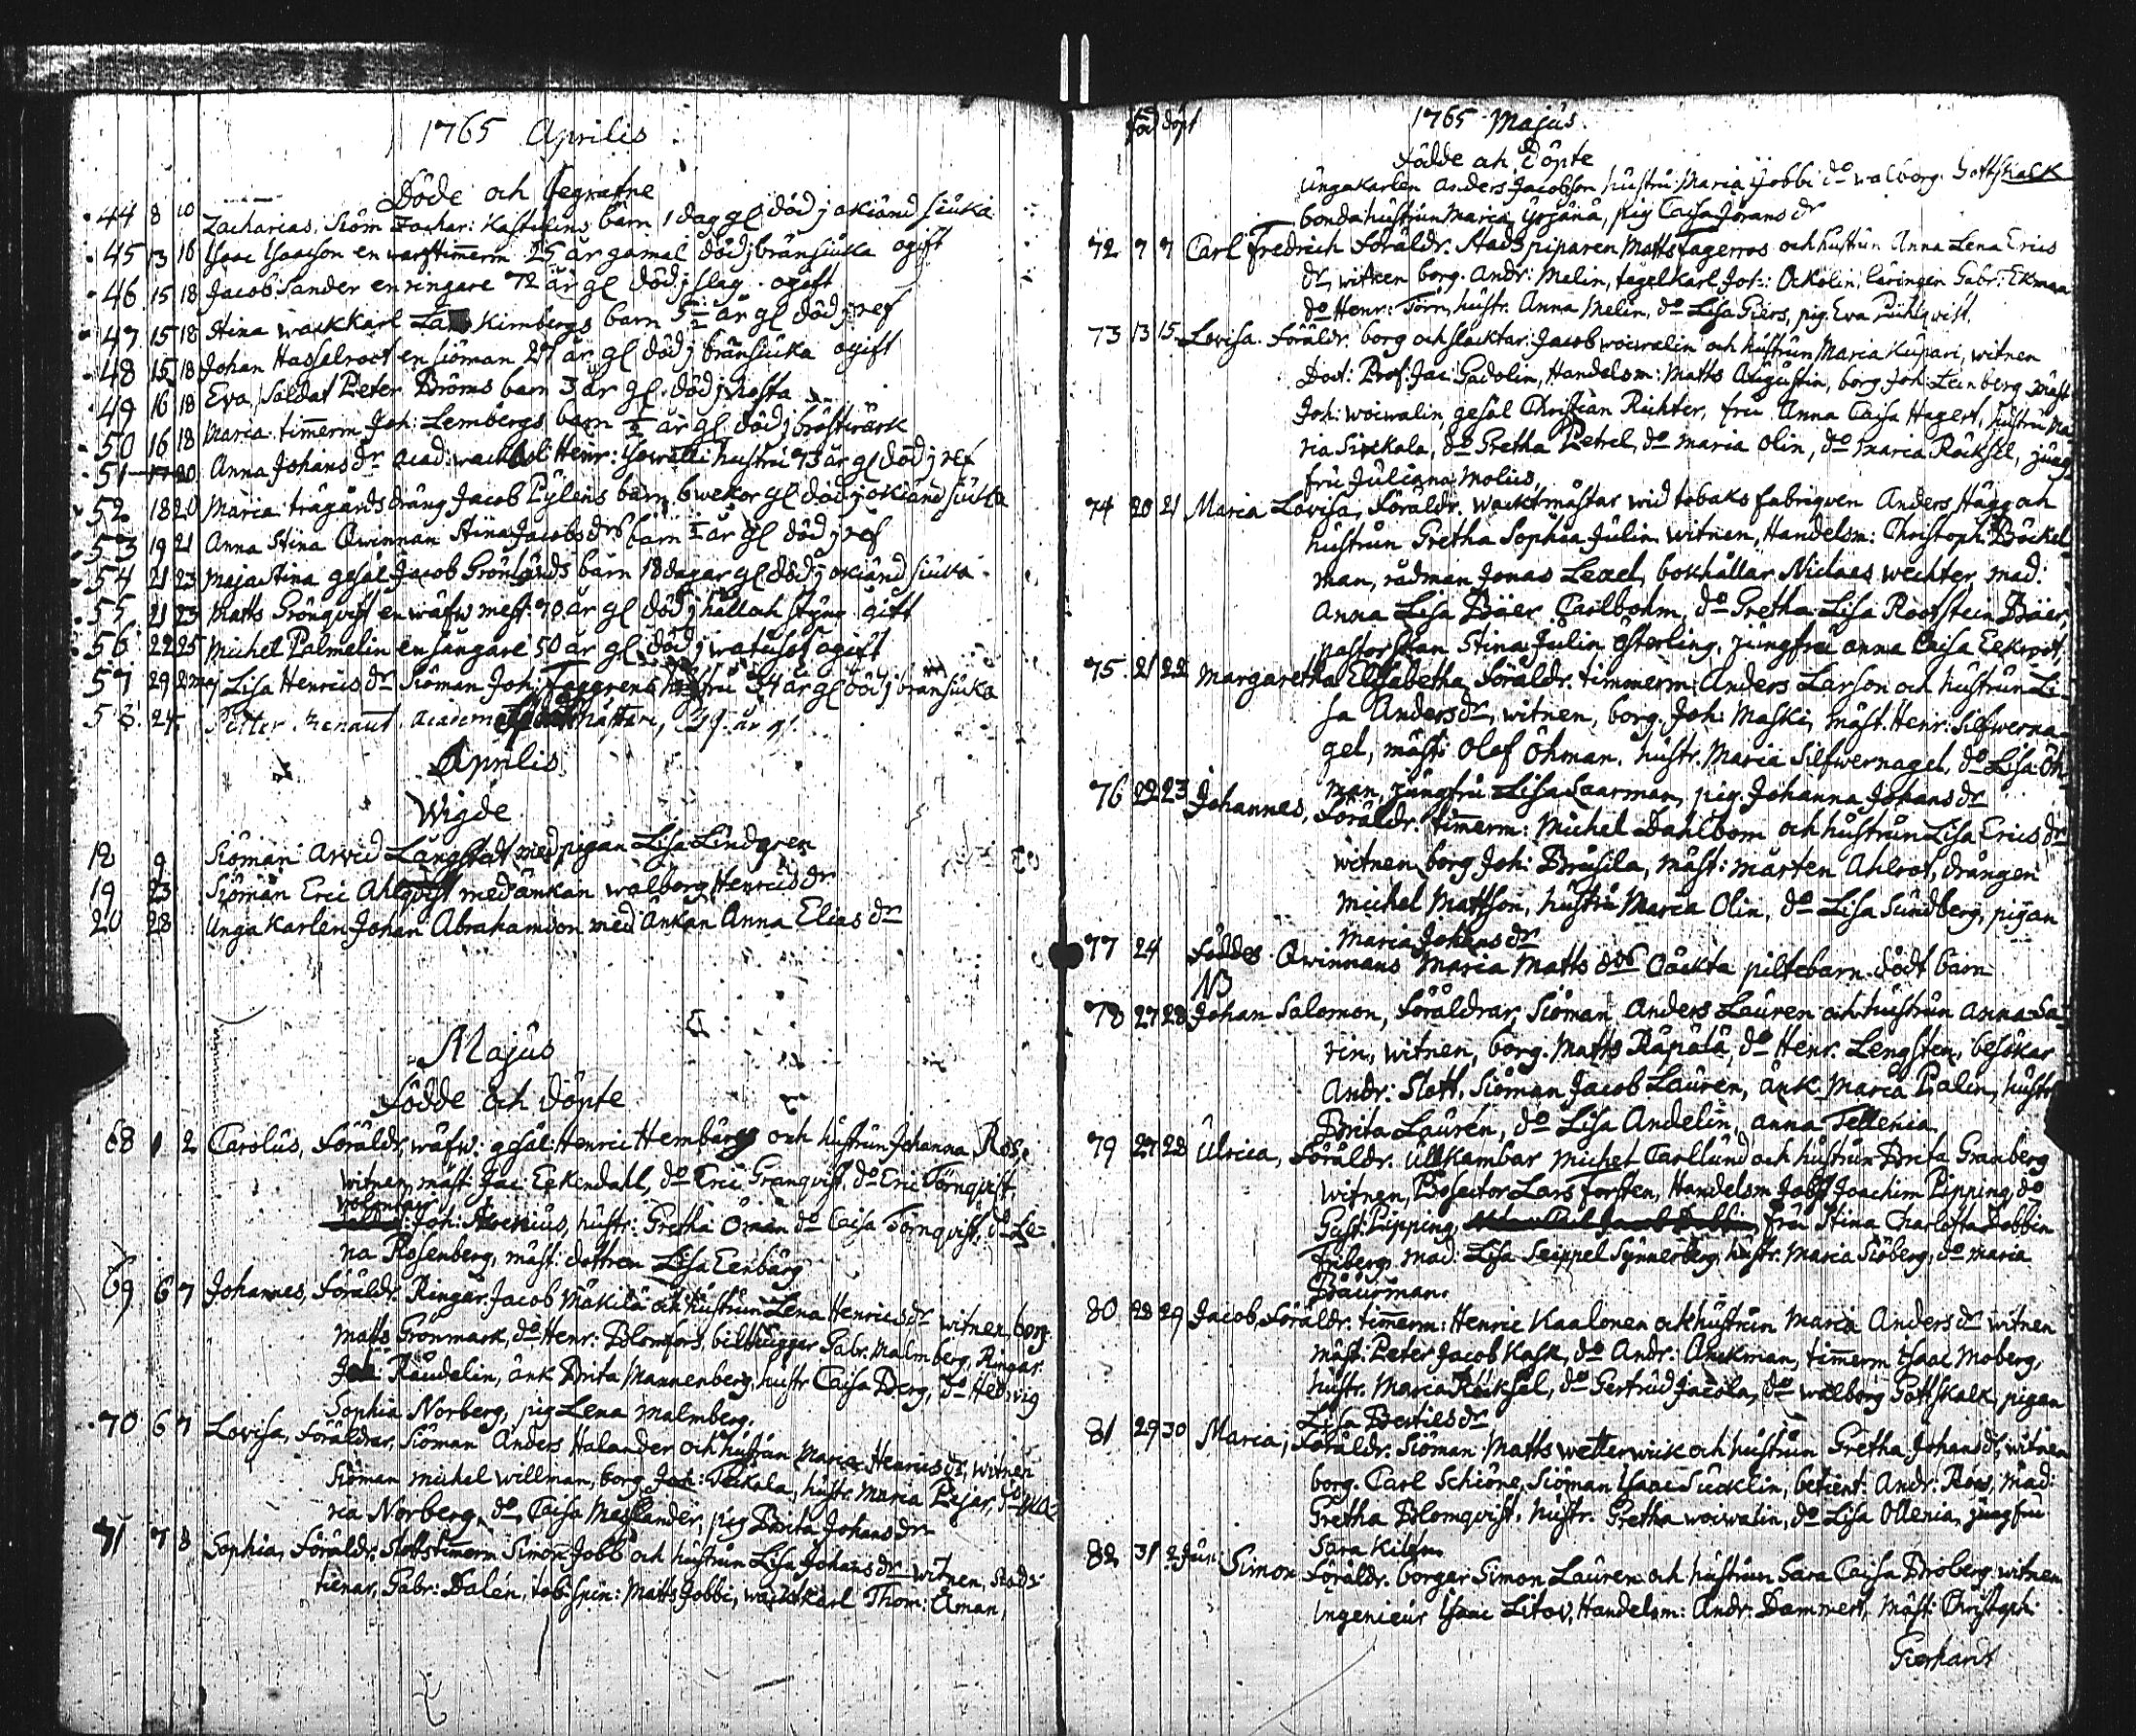 1765 Aprilis
Döde och begrafne
44 8 10 Zacharias. Siöm Zachar: barn 1 dag gl död j okiänd siuka
45 13 16 Isaac Isaacson en warfstimerm 25 år gamal död j bränsiuka ogift
46 15 18 Jacob Sander en ringare 72 år gl död j slag. ogift
47 15 18 Stina wacktkarl Kirnbergs barn 5 1/2 år gl död j ref
48 15 18 Johan Hasselroot en siöman 27 år gl död j bränsiuka ogift
49 16 18 Eva, Soldat Peter Bröms barn 3 år gl. död j hosta
50 16 18 Maria timerm Joh: Lembergs barn 1/2 år gl. död j bröstwärk
51 17 20 Anna Johans dr acad: Henr: hustru 73 år gl död j ref
52 18 20 Maria trägårdsdräng Jacob Pylens barn 6 wekor gl död j okiänd siuka
53 19 21 Anna Stina Qwinnan Stina Jacobs drs barn 1/2 år gl död j ref
54 21 23 Maja Stina gesäl Jacob Grönlunds barn 18 dagar gl död j okiänd siuka
55 21 23 Matts Grönqvist en wäfw mest. 70 år gl död j håll och styng gift
56 22 25 Michel Palmelin en sångare 50 år gl död j watusot ogift
57 29 2 maj Lisa Henrics dr Siöman Joh: hustru 34 år gl död j bränsiuka
58 24 Petter Renaut academie 39. år gl
Aprilis
Wigde
18 9 Siöman Arvid Långstedt med pigan Lisa Lindgren
19 23 Siöman Eric Ahlqvist med änkan walborg Henrics dr
20 28 Unga Karlen Johan Abrahamson med Änkan Anna Elias dr
Majus
Födde och döpte
68 1 2 Carolus, Föräldr, wäfw: gesäl: Henric Hemberg och hustrun Johanna Ros.
witnen mäst Jac: Eekendall, do Eric Granqvist, do Eric Törnqvist,
Joh: hustr: Gretha Öman do Caisa Törnqvist, do Le-
na Rosenberg, mäst. dottren Lisa Eenbärg
69 6 7 Johannes, Föräldr. Ringar. Jacob Mäkilä och hustrun Lena Henrics dr witnen borg.
Matts Grönmark, do Henr: Blomfors, bilthugger Gabr. Malmberg, Ringar.
Joh Raudelin, änk Brita Mannenberg, hustr Caisa Berg, do Hedwig
Sophia Norberg, pig Lena Malmberg.
70 6 7 Lovisa, Föräldrar, Siöman Anders Halander och hustrun Maria Henrics dr, witnen
Siöman Michel Willman, borg Joh: hustr. Maria do Ma-
ria Norberg, do Caisa Masslander, pig Brita Johans dr
71 7 8 Sophia, Föräldr. Slottstimerm Simon Jobb och hustrun Lisa Johans dr witnen, stads
tienar, Gabr: Dalén, tob: spin: Matts Jobbi, wacktkarl Thom: Åman,
föd döpt
1765 Majus
Födde ach Döpte
Ungakarlen Anders Jacobson hustru Maria Jobbi do walborg Gottskalk
bondahustrun Maria Yrjänä, pig Caisa Jörans dr
72 7 7 Carl Fredrich Föräldr. Stads piparen Matts Fagerros och hustrun Anna Lena Erics
dr, witnen borg. Andr: Malin, tegelkarl Joh: Ockolin, läringen Gabr: Ekman
do Henr: Törn, hustr. Anna Melin, do Lisa Giers, pig Eva
73 13 15 Lovisa. Föräldr, borg och slacktar Jacob woiwalin och hustrun Maria Kupari, witnen
Doct: Prof: Jac: Gadolin, Handelsm: Matts Augustin, borg Joh: Leinberg mäst
Joh: woiwalin, gesäl Christian Richter, fru Anna Caisa Hagert, hustru Ma-
ria Sirckala, do Gretha Petrel, do Maria Olin, do Maria Räcksel, jung-
fru Juliana Molius,
74 20 21 Maria Lovisa, Föräldr. wacktmästar wid tobaks fabriqven Anders Hägg och
hustrun Gretha Sophia Julin witnen, Handelsm: Christoph: Böckel
man, rådman Jonas Lexel, bokhållar Niclas wechter, mad:
Anna Lisa Bäer Carlbohm, do Gretha Lisa Roofstein Bäer,
pastorskan Stina Julin Österling, jungfru Anna Caisa Eekroot,
75 21 22 Margaretha Elisabetha, Föräldr. timmerm: Anders Larson och hustrun Li-
sa Anders dr, witnen, borg. Joh: Maski, mäst. Henr: Silfwerna-
gel, mäst: Olof Öhman, hustr. Maria Silfwernagel, do Lisa Öh-
man, jungfru Lisa Saarman, pig. Johanna Johans dr
76 22 23 Johannes, Föräldr. timerm: Michel Dahlbom och hustrun Lisa Erics dr
witnen borg Joh: Brusila, mäst: Mårten Ahlrot, drängen
Michel Mattson, hustru Maria Olin, do Lisa Sundberg, pigan
Maria Johans dr
77 24 Föddes Qwinnans Maria Matts drs Oäckta piltebarn dödt barn
NB
78 27 28 Johan Salomon, Föräldrar, Siöman Anders Lauren och hustrun Anna Sa-
rin, witnen, borg. Matts Räpälä, do Henr. Lengsten, besökar
Andr: Slott, Siöman Jacob Lauren, änk. Maria Palin, hustr
Brita Laurén, do Lisa Andelin, Anna Tellenia
79 27 28 Ulrica, Föräldr. Ullkambar Michel Carllund och hustrun Brita Granberg
witnen, Prosector Lars Forsten, Handelsm Joachim Pipping, do
Gust: Pipping, fru Stina Charlotta Dobbin
Friberg, mad: Lisa Seippel Synnerberg, hustr. Maria Siöberg, do Maria
Bauurman.
80 28 29 Jacob, Föräldr. timerm: Henric Kaalonen och hustrun Maria Anders dr witnen
mäst: Peter Jacob Kask, do Andr. Anckman, timerm Isaac Moberg,
hustr. Maria Räcksel, do Gertrud Jacola, do walborg Gottskalk, pigan
Lisa Bertils dr
81 29 30 Maria; Föräldr. Siöman Matts wetterwick och hustrun Gretha Johans dr, witnen
borg. Carl Schiöne, Siöman Isaac Sucklin, betient: Andr: Roos, mad:
Gretha Blomqvist, hustr. Gretha woiwalin, do Lisa Ollenia, jungfru
Sara
82 31 2 Jun: Simon Föräldr. borgar Simon Lauren och hustrun Sara Caisa Broberg witnen
ingenieur Isaac Litov, Handelsm: Andr. Dammert, mäst: Christoph:
Gierhardt